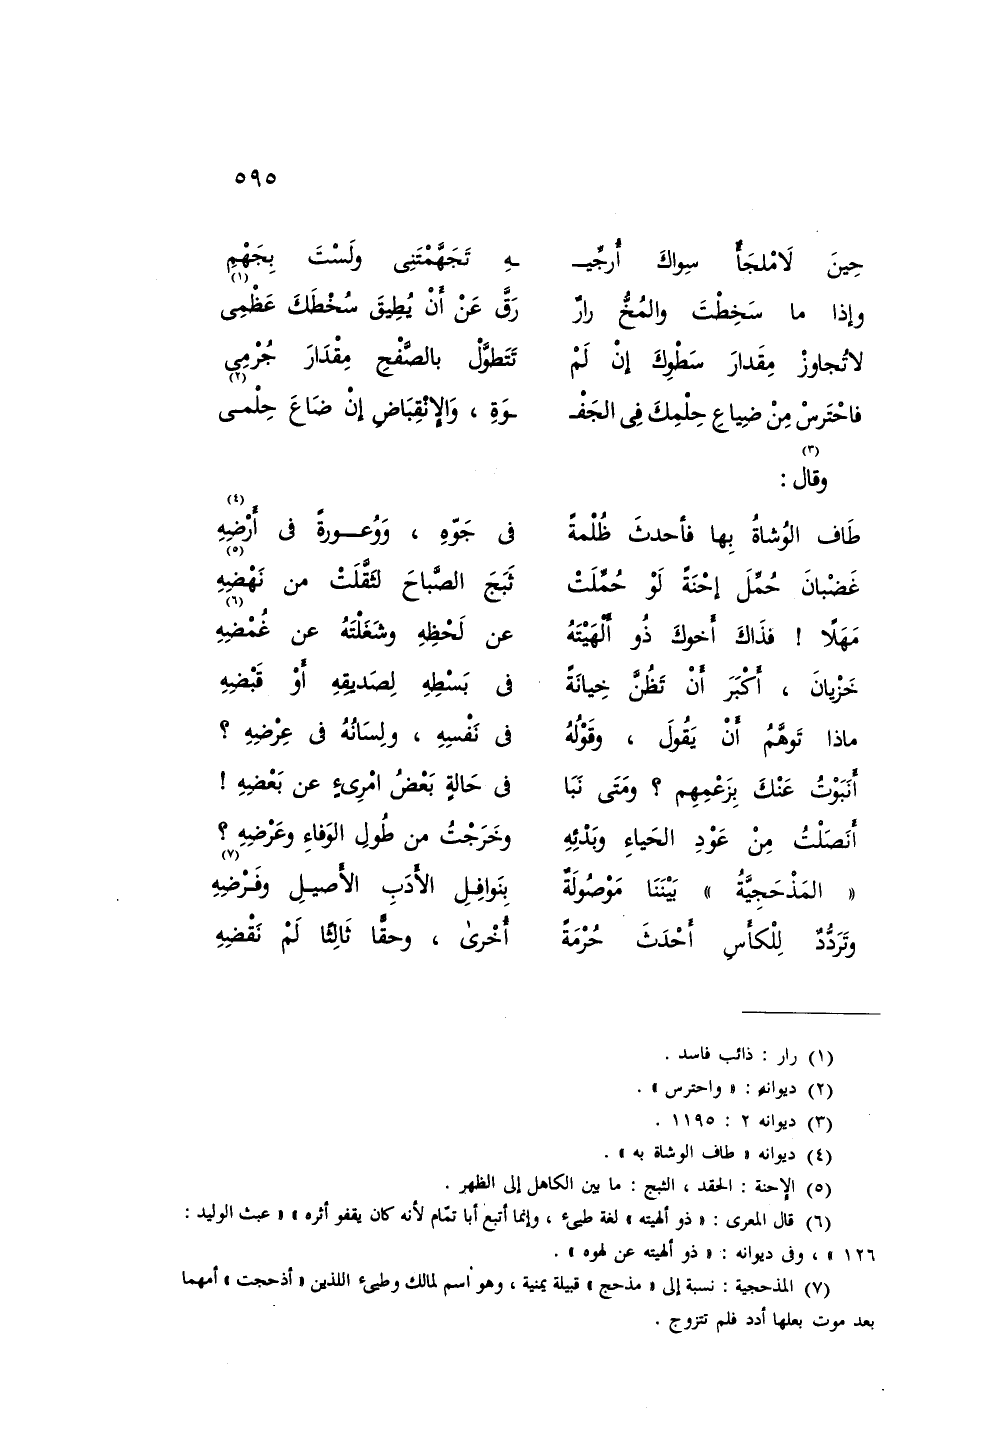 ٥٩٥
حِينَ لَامْلجَأٌ سِواكَ أُرجِّيـ ـهِ تَجَهَّمْتَنِى ولَسْتَ بِجَهْمِ
(١)
وإذا ما سَخِطْتَ والمُخُّ رارٌ رَقَّ عَنْ أَنْ يُطِيقَ سُخْطَكَ عَظْمِى
لاتُجاوِزْ مِقَدارَ سَطْوِكَ إنْ لَمْ تَتَطوَّلْ بالصَّفْحِ مِقْدَارَ جُرْمِى
(٢)
فاحْتَرسْ مِنْ ضيِاعِ حِلْمِكَ فِى الجَفْـ ـوَةِ ، وَالإنْقِبَاضِ إنْ ضَاعَ حِلْمـى
(٣)
وقال :
(٤)
طَاف الوُشاةُ بِها فأحدثَ ظُلْمةً فى جَوّهِ ، وَوُعـورةً فى أَرْضِهِ
(٥)
غَضْبانَ حُمِّلَ إحْنَةً لَوْ حُمِّلَتْ ثَبَجَ الصَّباحَ لثَقَّلَتْ من نَهْضِهِ
(٦)
مَهَلًا ! فذَاكَ أَخوكَ ذُو أَلْهَيْتَهُ عن لَحْظِهِ وشَغَلْتَهُ عن غُمْضِهِ
خَزْيانَ ، أَكْبَرَ أَنْ تَظُنَّ خِيانَةً فى بَسْطِهِ لِصَديقِهِ أَوْ قَبْضِهِ
ماذا تَوهَّمُ أَنْ يَقُولَ ، وقَوْلُهُ فى نَفْسِهِ ، ولِسَانُهُ فى عِرْضِهِ ؟
أَنَبَوْتُ عَنْكَ بِزَعْمِهِم ؟ ومَتَى نَبَا فى حَالةٍ بَعْضُ امْرِىءٍ عن بَعْضِهِ !
أَنَصَلْتُ مِنْ عَوْدِ الحَياءِ وبَدْئِهِ وخَرَجْتُ من طُولِ الوَفاءِ وعَرْضِهِ ؟
(٧)
« المَذْحَجِيَّةُ » بَيْنَنَا مَوْصُولَةٌ بِنَوافِلِ الأَدَبِ الأَصيـلِ وفَـرْضِهِ
وتَرَدُّدٌ لِلْكأَسِ أَحْدَثَ حُرْمَةً أُخْرىٰ ، وحقًّا ثَالِثًا لَمْ نَقْضِهِ
(١) رار : ذائب فاسد .
(٢) ديوانه : « واحترس » .
(٣) ديوانه ٢ : ١١٩٥ .
(٤) ديوانه « طاف الوشاة به » .
(٥) الإحنة : الحقد ، الثبج : ما بين الكاهل إلى الظهر .
(٦) قال المعرى : « ذو ألهيته » لغة طيىء ، وإنما أتبع أبا تمّام لأنه كان يقفو أثره » « عبث الوليد :
١٢٦ » ، وفى ديوانه : « ذو ألهيته عن لهوه » .
(٧) المذحجية : نسبة إلى « مذحج » قبيلة يمنية ، وهو اسم لمالك وطيىء اللذين « أذحجت » أمهما
بعد موت بعلها أدد فلم تتزوج .